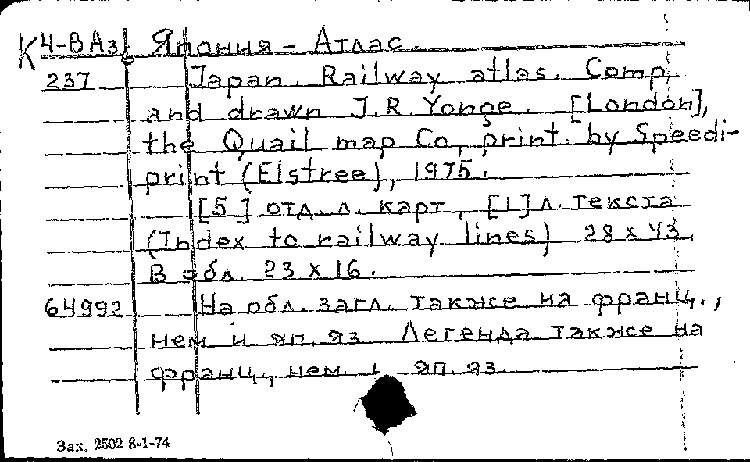 К 4-ВАз Япония – Атлас.
237 Japan. Railway atlas. Comp.
and drawn J.R. Yonge. [London],
the Quail map Co, print. by Speedi-
print (Elstree), 1975.
[5] отд. л. карт, [1] л. текста
(Index to railway lines) 28 x 43.
В обл. 23 x 16.
64992 На обл. загл. также на франц.,
нем. и яп. яз. Легенда также на
франц., нем. и яп. яз.
Зак. 2502 8-1-74